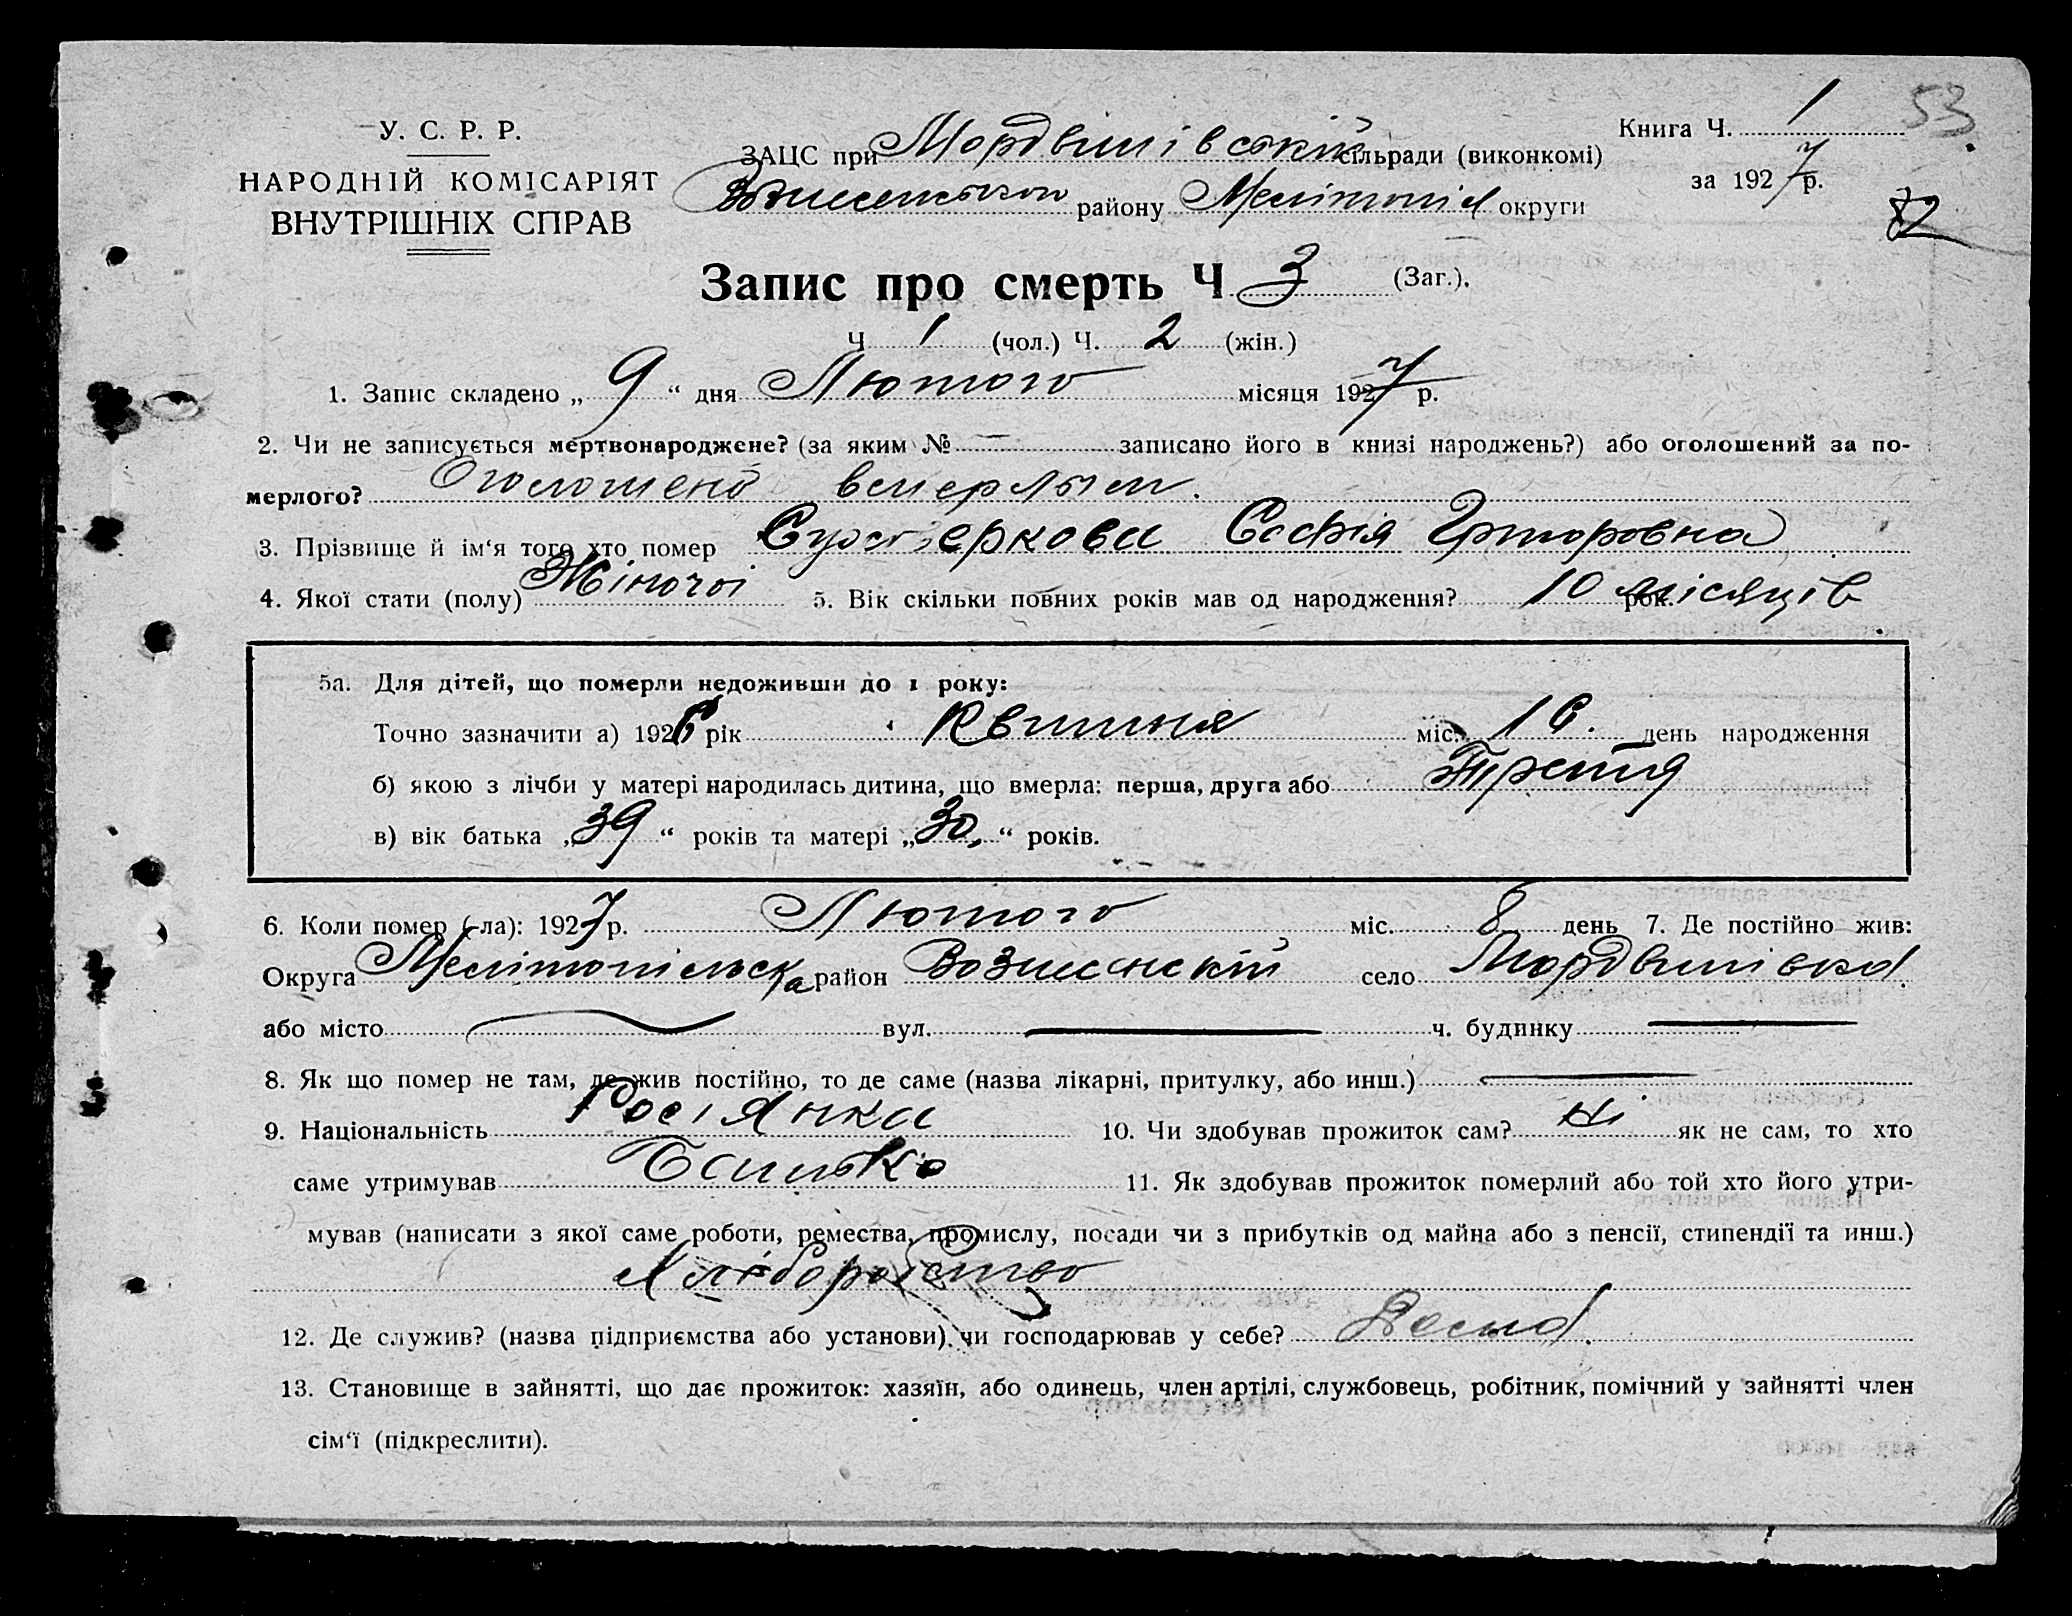 У. С. Р. Р.
НАРОДНІЙ КОМІСАРІЯТ
ВНУТРІШНІХ СПРАВ
ЗАЦС при Мордвинівській сільради (виконкомі)
Вознесенського району Мелітопіл округи
Книга Ч. 1
за 1927 р.
53
72
Запис про смерть Ч 3 (Заг.).
Ч 1 (чол.) Ч. 2 (жін.)
1. Запис складено „ 9 “ дня Лютого місяця 1927 р.
2. Чи не записується мертвонароджене? (за яким № — записано його в книзі народжень?) або оголошений за по-
мерлого? Оголошено вмерлым.
3. Прізвище й ім‘я того хто помер Софія
4. Якої стати (полу) Жіночоі 5. Вік скільки повних років мав од народження? 10 місяців рок.
5а. Для дітей, що померли недоживши до 1 року:
Точно зазначити а) 1926 рік Квітня міс. день народження
б) якою з лічби у матері народилась дитина, що вмерла: перша, друга або Третя
в) вік батька „39“ років та матері „30“ років.
6. Коли помер (-ла): 1927 р. Лютого міс. 8 день 7. Де постійно жив:
Округа Мелітопільська район Вознесенскій село Мордвинівка
або місто — вул. — ч. будинку —
8. Як що помер не там, де жив постійно, то де саме (назва лікарні, притулку, або инш.) —
9. Національність Росіянка 10. Чи здобував прожиток сам? Ні як не сам, то хто
саме утримував Батько 11. Як здобував прожиток померлий або той хто його утри-
мував (написати з якої саме роботи, ремества, промислу, посади чи з прибутків од майна або з пенсії, стипендії та инш.)
Хліборобство
12. Де служив? (назва підприємства або установи), чи господарював у себе?
13. Становище в зайнятті, що дає прожиток: хазяїн, або одинець, член артілі, службовець, робітник, помічний у зайнятті член
сім‘ї (підкреслити).